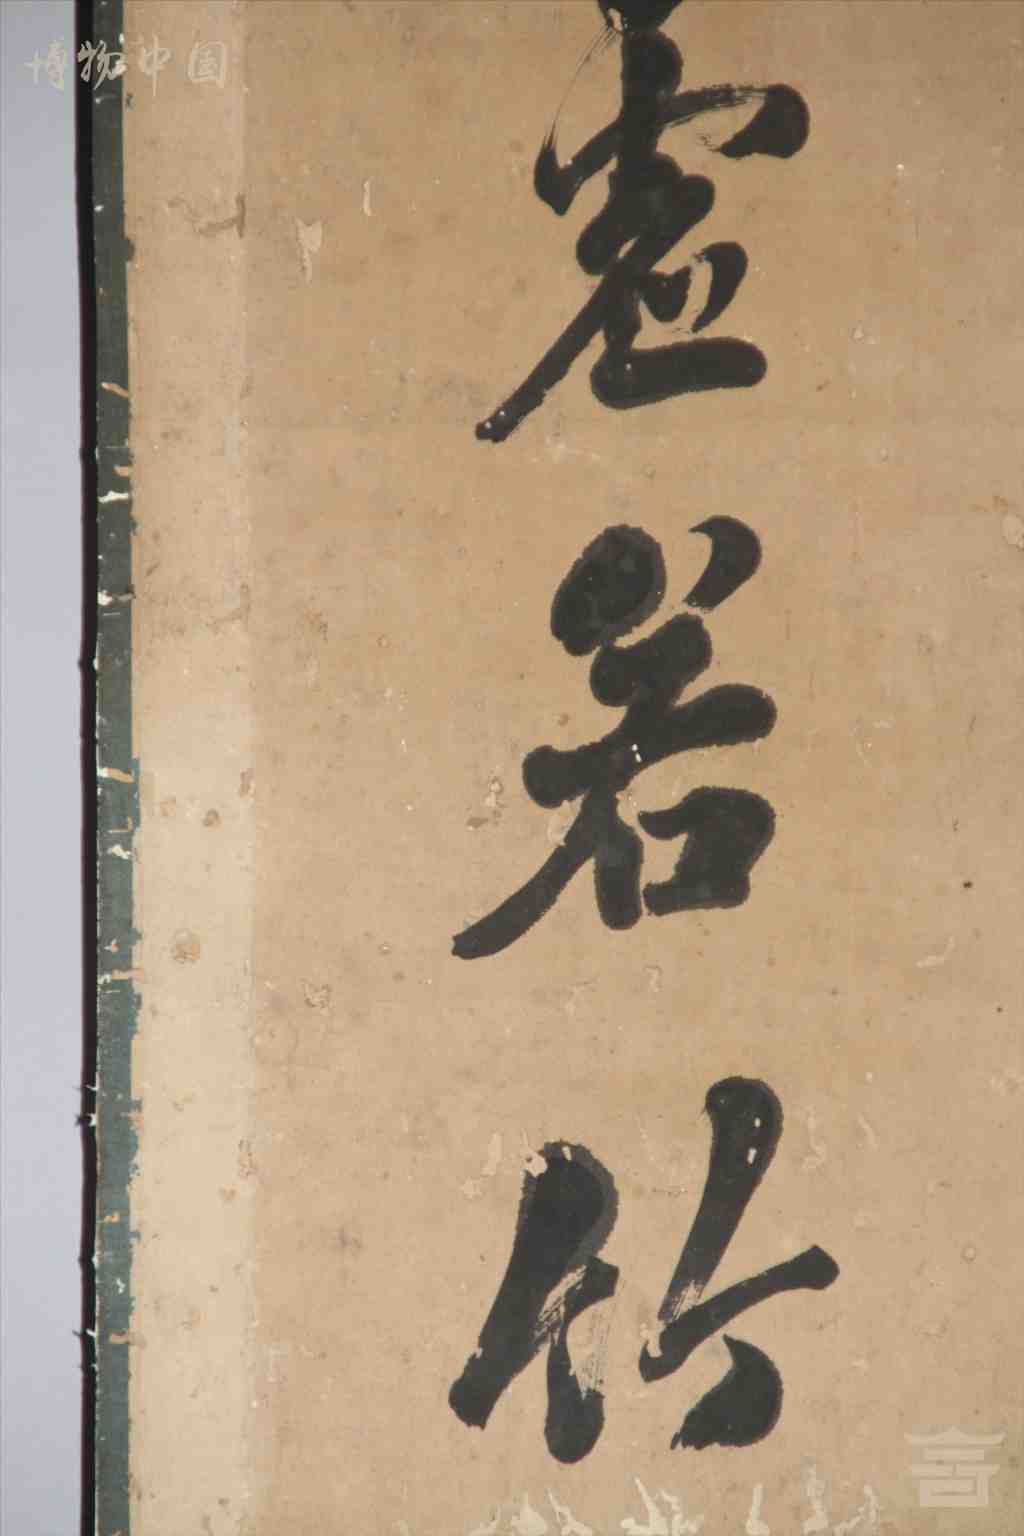 博物中国
虚
若
竹